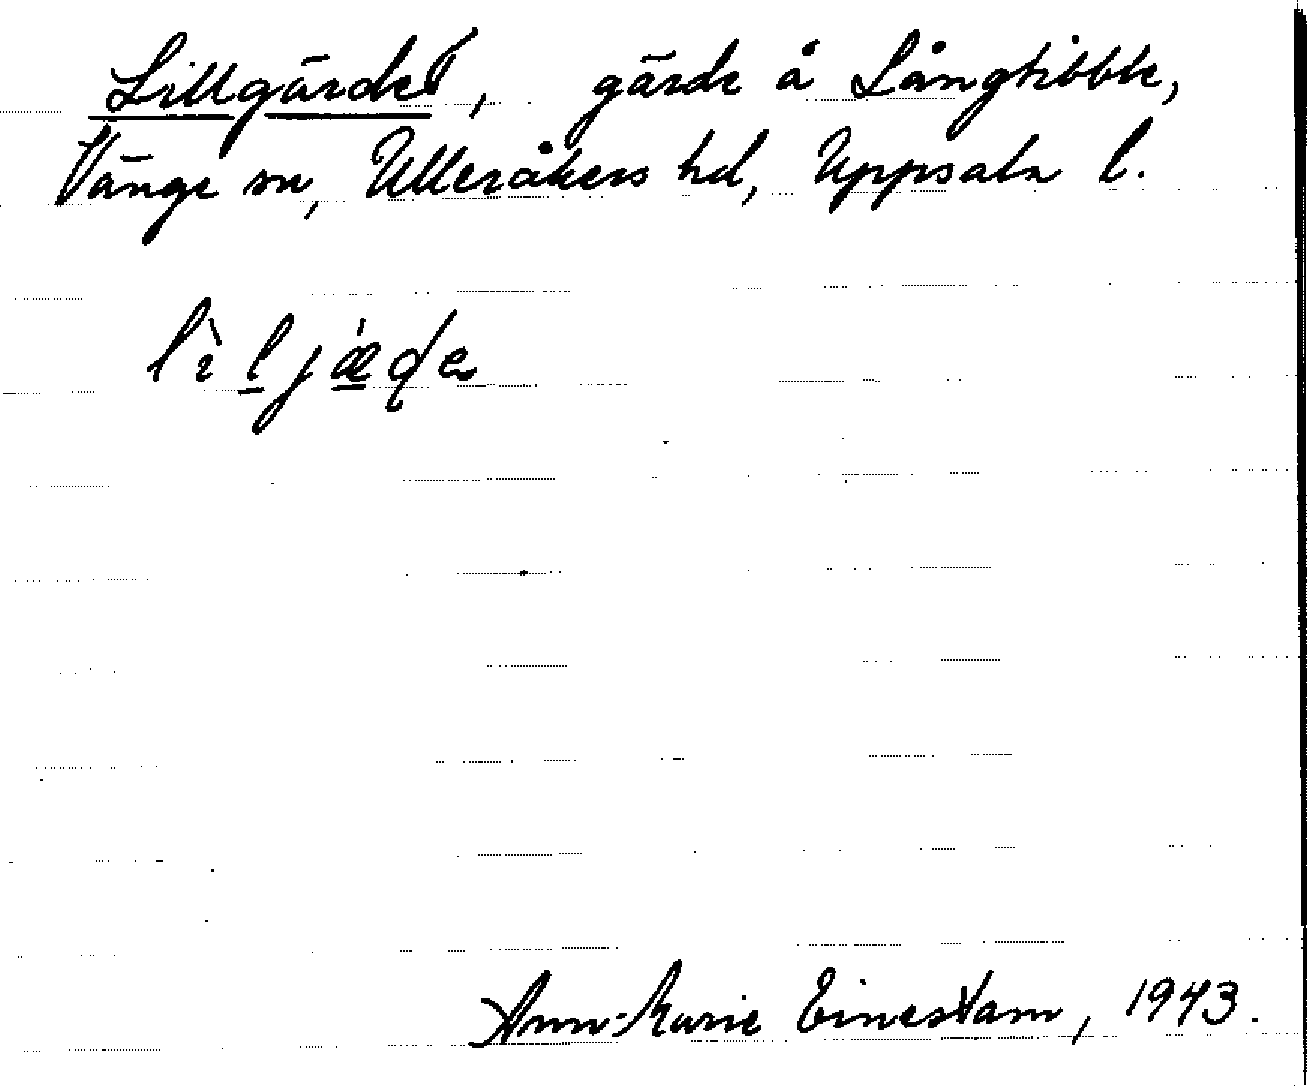 Lillgärdet, gärde å Långtibble,
Vänge sn, Ulleråkers hd, Uppsala l.
lìljǽɖa
Ann-Marie Einestam, 1943.